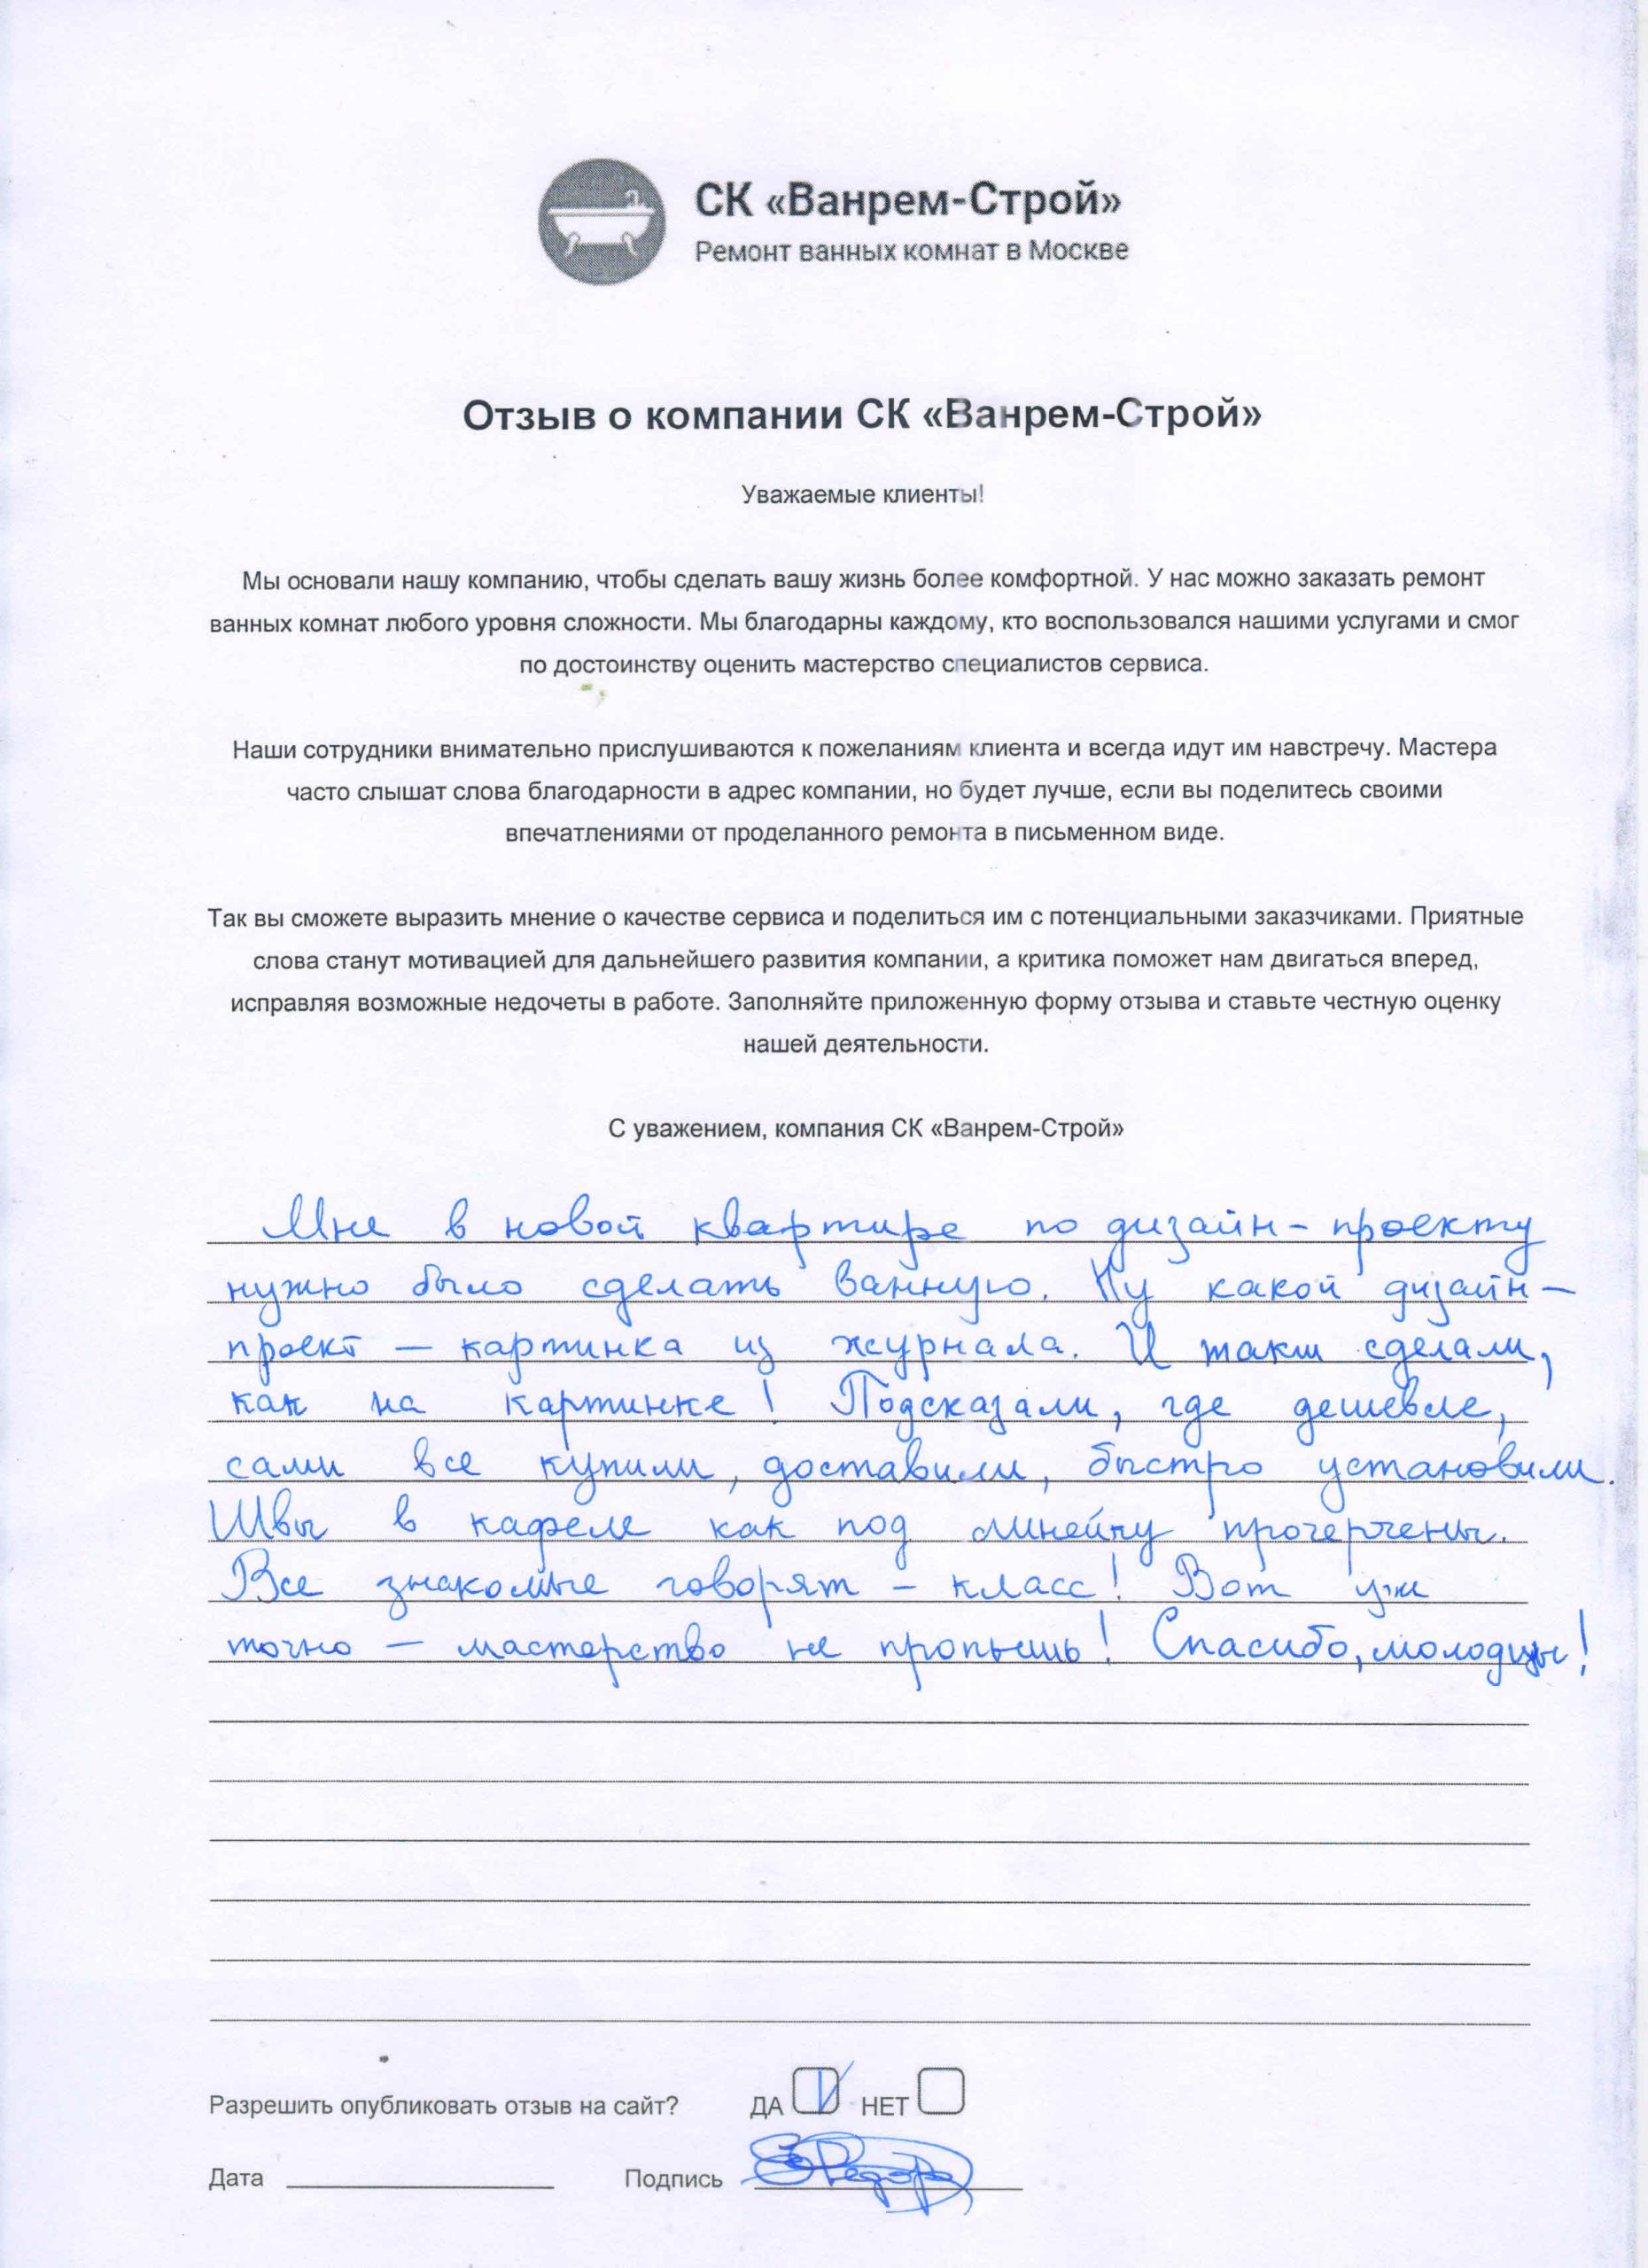 СК «Ванрем-Строй»
Ремонт ванных комнат в Москве
Отзыв о компании СК «Ванрем-Строй»
Уважаемые клиенты!
Мы основали нашу компанию, чтобы сделать вашу жизнь более комфортной. У нас можно заказать ремонт
ванных комнат любого уровня сложности. Мы благодарны каждому, кто воспользовался нашими услугами и смог
по достоинству оценить мастерство специалистов сервиса.
Наши сотрудники внимательно прислушиваются к пожеланиям клиента и всегда идут им навстречу. Мастера
часто слышат слова благодарности в адрес компании, но будет лучше, если вы поделитесь своими
впечатлениями от проделанного ремонта в письменном виде.
Так вы сможете выразить мнение о качестве сервиса и поделиться им с потенциальными заказчиками. Приятные
слова станут мотивацией для дальнейшего развития компании, а критика поможет нам двигаться вперед,
исправляя возможные недочеты в работе. Заполняйте приложенную форму отзыва и ставьте честную оценку
нашей деятельности.
С уважением, компания СК «Ванрем-Строй»
Мне в новой квартире по дизайн-проекту
нужно было сделать ванную. Ну какой дизайн-
проект — картинка из журнала. И таки сделали,
как на картинке! Подсказали, где дешевле,
сами все купили, доставили, быстро установили.
Швы в кафеле как под линейку прочерчены.
Все знакомые говорят – класс! Вот уж
точно — мастерство не пропьешь! Спасибо, молодцы!
Разрешить опубликовать отзыв на сайт? ДА НЕТ
Дата Подпись